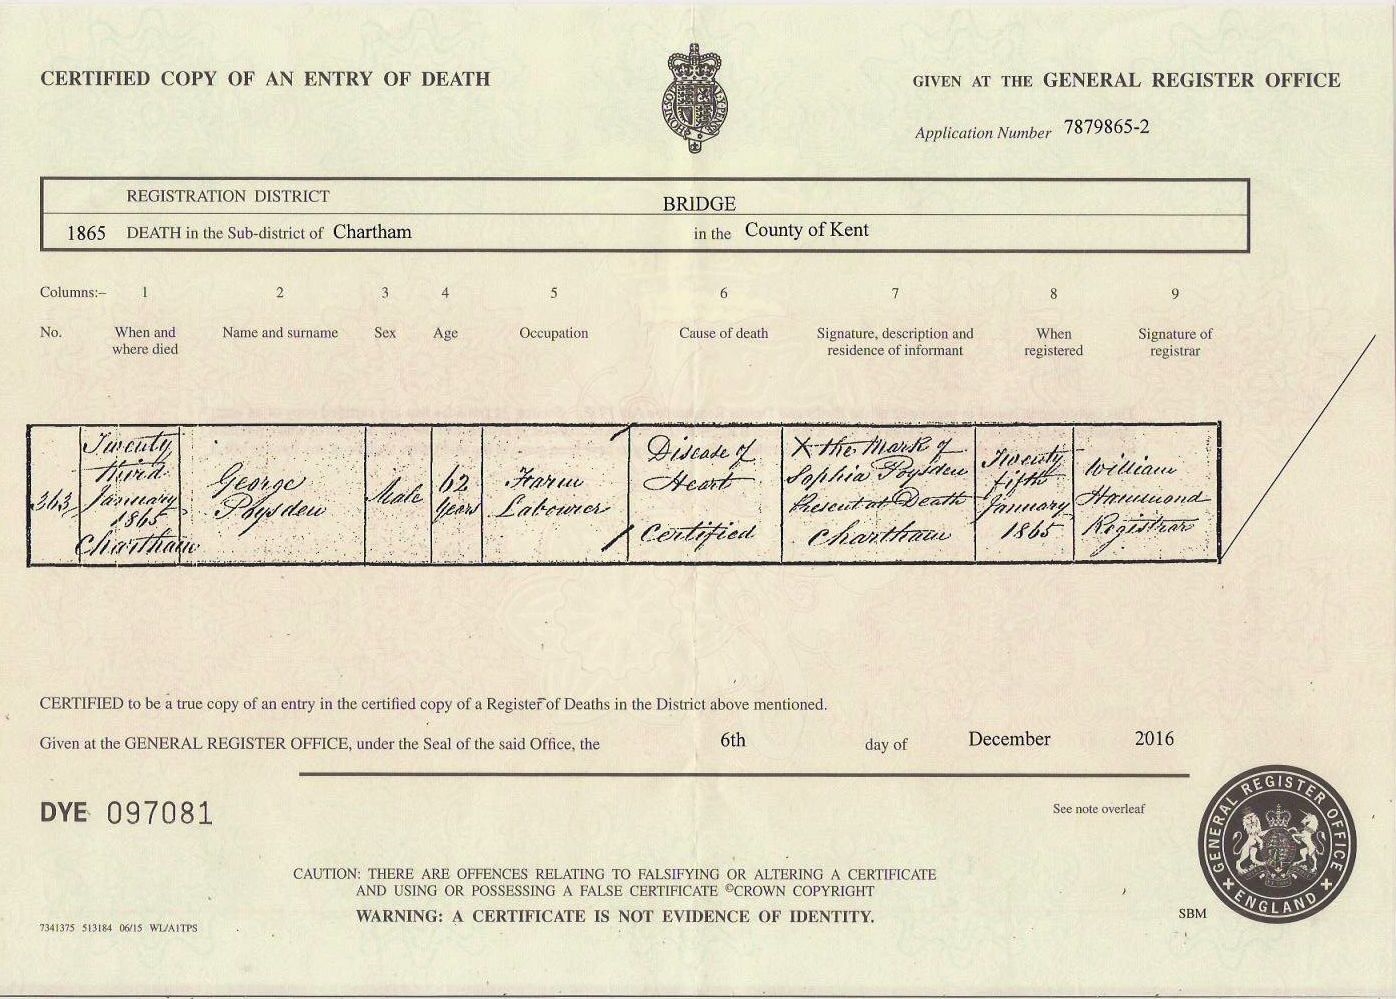 CERTIFIED COPY OF AN ENTRY OF DEATH
GIVEN AT THE GENERAL REGISTER OFFICE
Application Number 7879865-2
REGISTRATION DISTRICT BRIDGE
1865 DEATH in the Sub-district of Chartham in the County of Kent
Columns:– 1 2 3 4 5 6 7 8 9
No.
When and
where died
Name and surname
Sex
Age
Occupation
Cause of death
Signature, description and
residence of informant
When
registered
Signature of
registrar
363
Twenty
third
January
1865
Chartham
George
Poysden
Male
62
Years
Farm
Labourer
Disease of
Heart
Certified
X the Mark of
Sophia Poysden
Present at Death
Chartham
Twenty
fifth
January
1865
William
Hammond
Registrar
CERTIFIED to be a true copy of an entry in the certified copy of a Register of Deaths in the District above mentioned.
Given at the GENERAL REGISTER OFFICE, under the Seal of the said Office, the 6th day of December 2016
DYE 097081
See note overleaf
GENERAL REGISTER OFFICE
ENGLAND
CAUTION: THERE ARE OFFENCES RELATING TO FALSIFYING OR ALTERING A CERTIFICATE
AND USING OR POSSESSING A FALSE CERTIFICATE ©CROWN COPYRIGHT
WARNING: A CERTIFICATE IS NOT EVIDENCE OF IDENTITY.
SBM
7341375 513184 06/15 WL/A1TPS